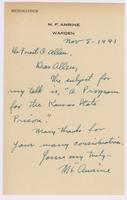 MEMORANDUM
M. F. AMRINE
WARDEN
Nov 5 - 1941
Dear Allen,
The subject for
my talk is, "A Program
for the Kansas State
Prison."
Many thanks for
your many considerations.
Yours very truly -
M F Amrine